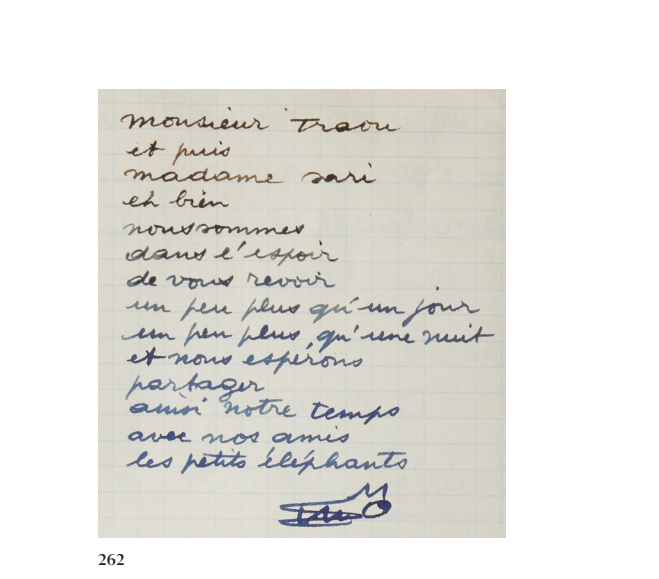 monsieur Traou
et puis
madame sari
eh bien
noussommes
dans l'espoir
de vous revoir
un peu plus qu'un jour
un peu plus, qu'une nuit
et nous espérons
partager
ainsi notre temps
avec nos amis
les petits éléphants
262